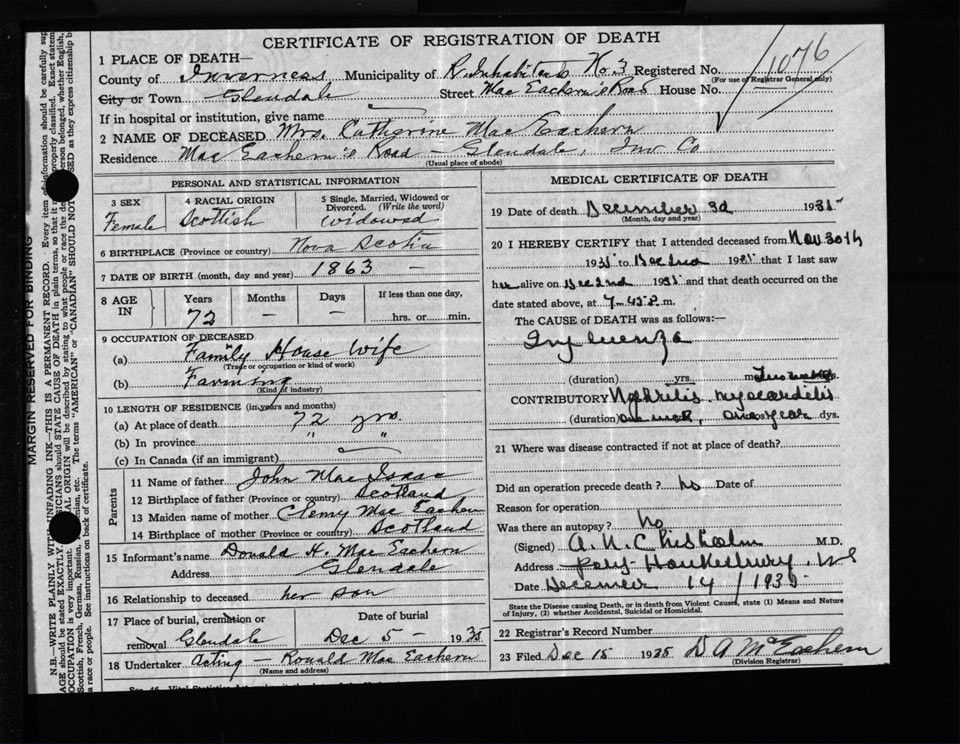 CERTIFICATE OF REGISTRATION OF DEATH
1 PLACE OF DEATH—
County of Inverness Municipality of R. Inhabitants No 3 Registered No. 1076
(For use of Registrar General only)
City or Town Glendale Street Mac Eachern's Road House No.
If in hospital or institution, give name
2 NAME OF DECEASED Mrs. Catherine Mac Eachern
Residence Mac Eachern's Road – Glendale, Inv. Co
(Usual place of abode)
PERSONAL AND STATISTICAL INFORMATION
3 SEX
Female
4 RACIAL ORIGIN
Scottish
5 Single, Married, Widowed or
Divorced. (Write the word)
Widowed
6 BIRTHPLACE (Province or country) Nova Scotia
7 DATE OF BIRTH (month, day and year) 1863 –
8 AGE
IN
Years
72
Months
–
Days
–
If less than one day,
hrs. or min.
9 OCCUPATION OF DECEASED
(a) Family House Wife
(Trade or occupation or kind of work)
(b) Farming
(Kind of industry)
10 LENGTH OF RESIDENCE (in years and months)
(a) At place of death 72 yrs.
(b) In province " "
(c) In Canada (if an immigrant)
Parents
11 Name of father John Mac Isaac
12 Birthplace of father (Province or country) Scotland
13 Maiden name of mother Clemy Mac Eachern
14 Birthplace of mother (Province or country) Scotland
15 Informant's name Donald H. Mac Eachern
Address Glendale
16 Relationship to deceased her son
17 Place of burial, cremation or
removal Glendale
Date of burial
Dec 5 – 1935
18 Undertaker Acting – Ronald Mac Eachern
(Name and address)
MEDICAL CERTIFICATE OF DEATH
19 Date of death December 3d 1935
(Month, day and year)
20 I HEREBY CERTIFY that I attended deceased from Nov. 30th
1935 to Dec 2nd 1935 that I last saw
her alive on Dec 2nd 1935 and that death occurred on the
date stated above, at 7-45 P.m.
The CAUSE of DEATH was as follows:—
Influenza
(duration) yrs. Two weeks
CONTRIBUTORY Nephritis. Myocarditis
(duration) one year dys.
21 Where was disease contracted if not at place of death?
Did an operation precede death? No Date of
Reason for operation
Was there an autopsy? No
(Signed) A. N. Chisholm M.D.
Address Port Hawkesbury. N.S
Date December 14 / 1935
State the Disease causing Death, or in death from Violent Causes, state (1) Means and Nature
of Injury, (2) whether Accidental, Suicidal or Homicidal.
22 Registrar's Record Number
23 Filed Dec 15 1935 D A McEachern
(Division Registrar)
MARGIN RESERVED FOR BINDING
N.B.—WRITE PLAINLY WITH UNFADING INK—THIS IS A PERMANENT RECORD. Every item of information should be carefully
AGE should be stated EXACTLY. PHYSICIANS should STATE CAUSE OF DEATH in plain terms, so that it may properly classified. Exact
OCCUPATION is very important. RACIAL ORIGIN will be described by stating to what people or race the person belonged, whether English,
Scottish, French, German, Russian, etc. The terms "AMERICAN" or "CANADIAN" SHOULD NOT USED as they express citizenship
a race or people. See instructions on back of certificate.